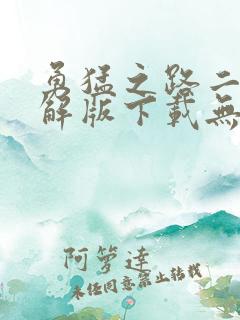 勇猛之路二
解版下載無
阿籮達
未经同意禁止转载